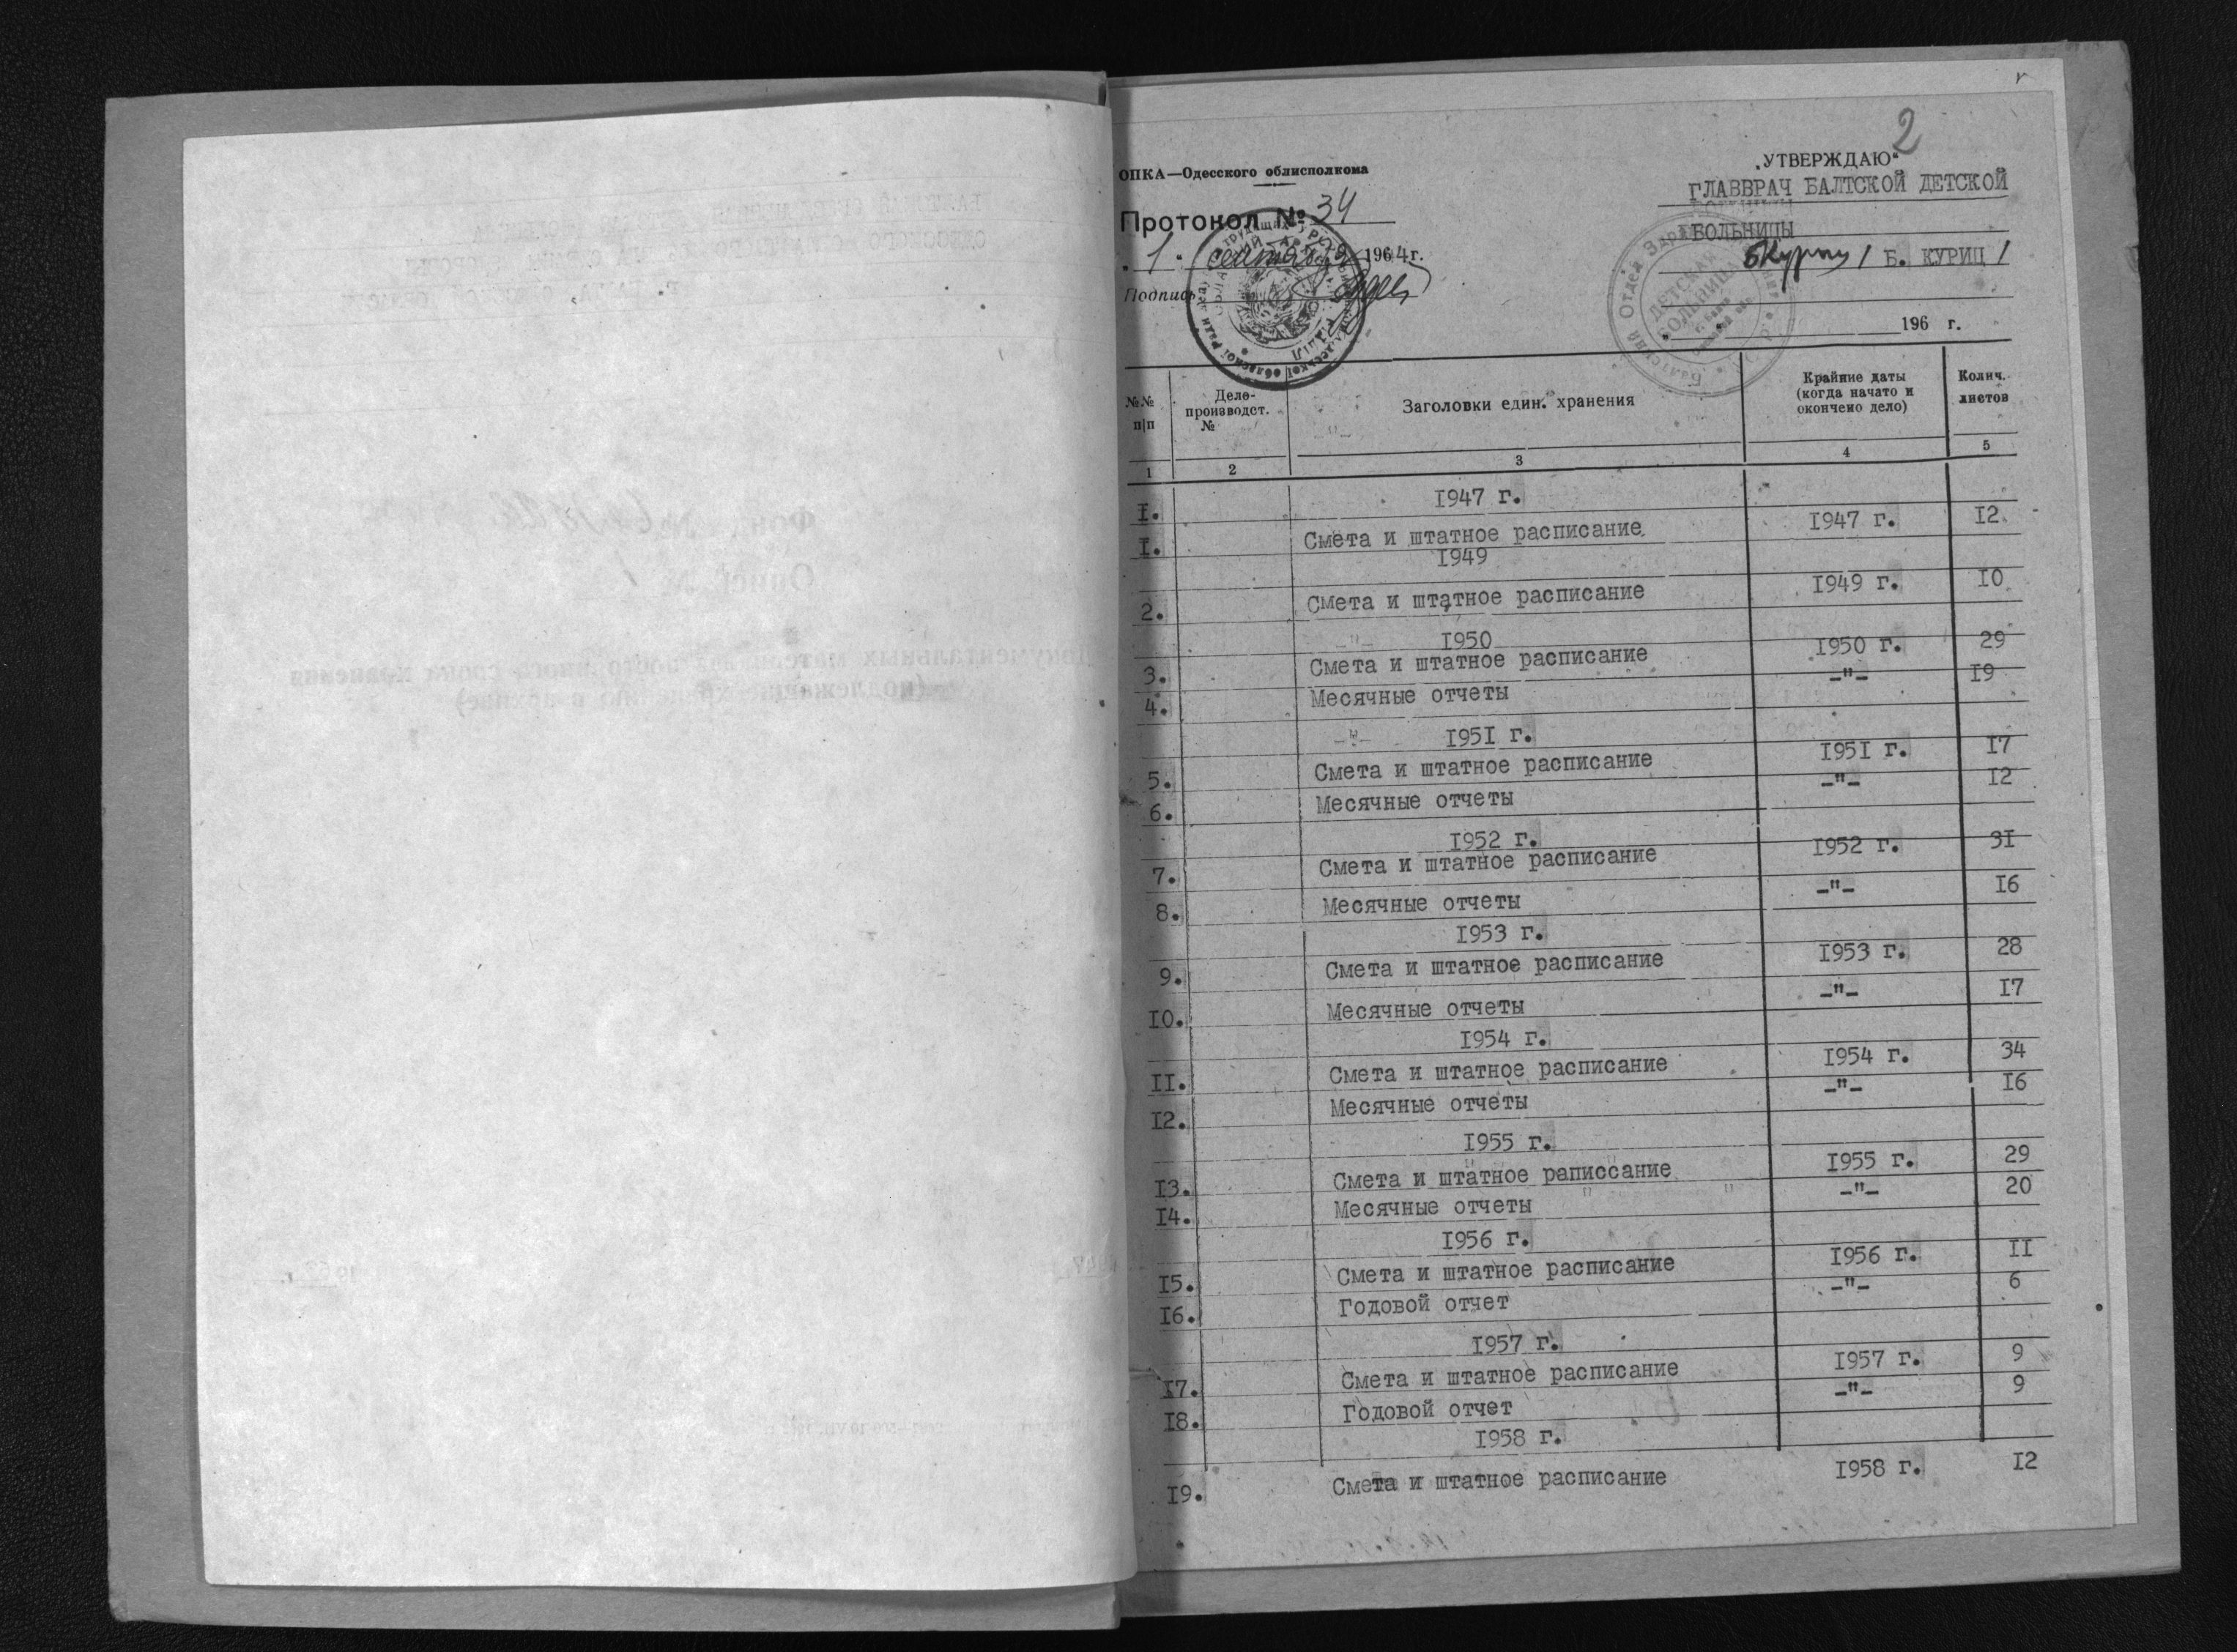 2
ОПКА—Одесского облисполкома
Протокол № 34
„1" сентября 1964 г.
Подпись
„УТВЕРЖДАЮ"
ГЛАВВРАЧ БАЛТСКОЙ ДЕТСКОЙ
БОЛЬНИЦЫ
/ Б. КУРИЦ /
196 г.
№№ п|п
Дело-производст. №
Заголовки един. хранения
Крайние даты (когда начато и окончено дело)
Колич. листов
1 2 3 4 5
I. 1947 г.
I. Смета и штатное расписание 1947 г. I2
1949
2. Смета и штатное расписание 1949 г. I0
1950
3. Смета и штатное расписание 1950 г. 29
4. Месячные отчеты -"- I9
-"- I95I г.
5. Смета и штатное расписание I95I г. I7
6. Месячные отчеты -"- I2
I952 г.
7. Смета и штатное расписание I952 г. 3I
8. Месячные отчеты -"- I6
I953 г.
9. Смета и штатное расписание I953 г. 28
I0. Месячные отчеты -"- I7
I954 г.
II. Смета и штатное расписание I954 г. 34
I2. Месячные отчеты -"- I6
I955 г.
I3. Смета и штатное раписсание I955 г. 29
I4. Месячные отчеты -"- 20
I956 г.
I5. Смета и штатное расписание I956 г. II
I6. Годовой отчет -"- 6
I957 г.
I7. Смета и штатное расписание I957 г. 9
I8. Годовой отчет -"- 9
I958 г.
I9. Смета и штатное расписание I958 г. I2